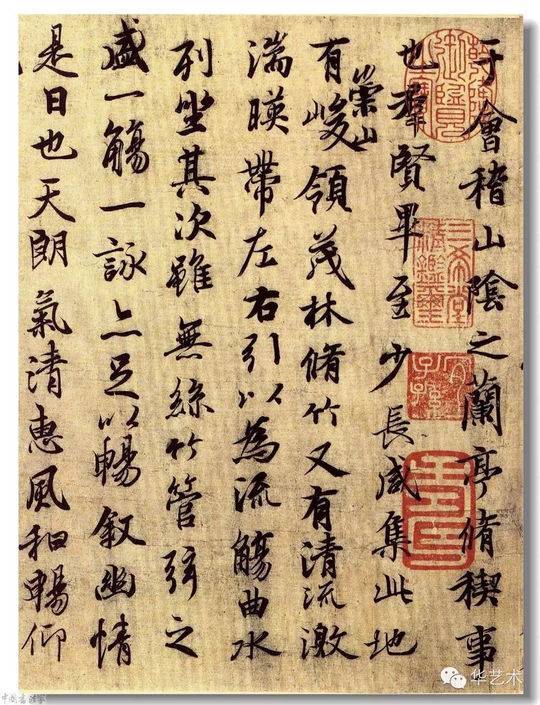 于會稽山陰之蘭亭脩稧事
也羣賢畢至少長咸集此地
有崇山峻領茂林脩竹又有清流激
湍暎帶左右引以為流觴曲水
列坐其次雖無絲竹管弦之
盛一觴一詠亦足以暢叙幽情
是日也天朗氣清惠風和暢仰
乾隆御覽之寶
三希堂精鑑璽
宜子孫
华艺术